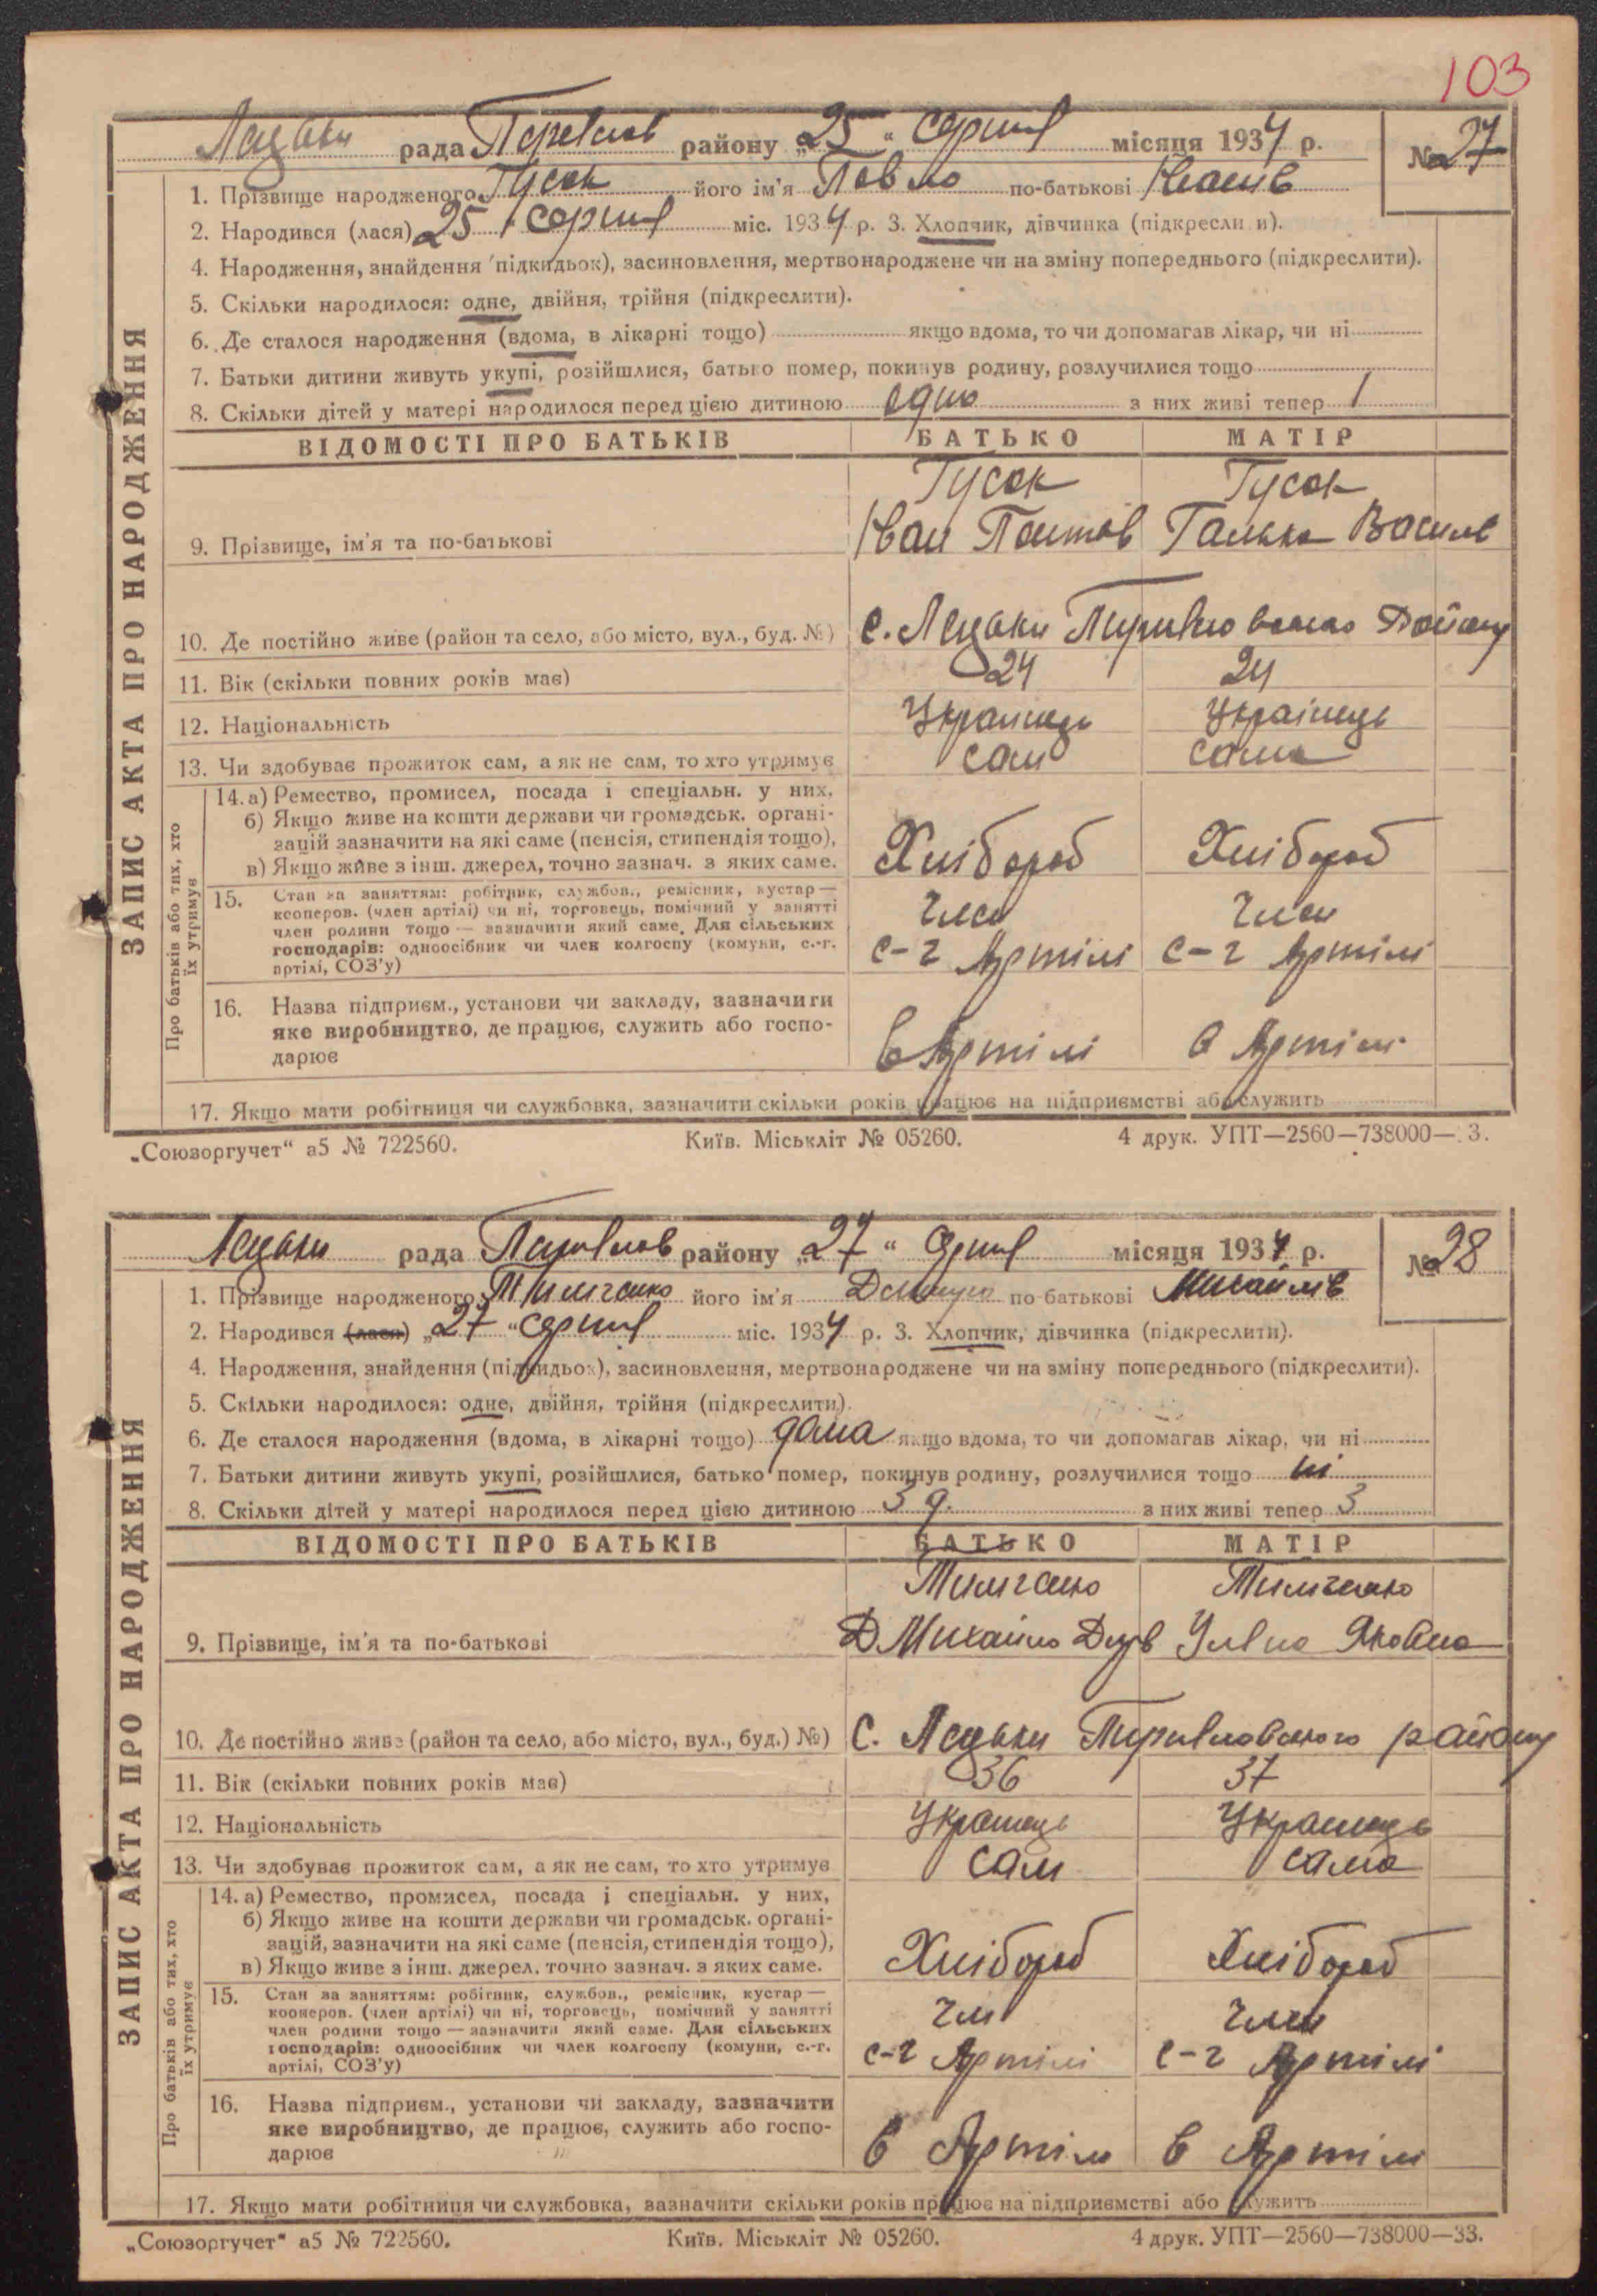 103
рада района „25“ серпня місяця 1934 р. № 27
1. Прізвище народженого Гусак його ім'я Павло по-батькові Іванів
2. Народився (лася) 25 серпня міс. 1934 р. 3. Хлопчик, дівчинка (підкреслити).
4. Народження, знайдення (підкидьок), засиновлення, мертвонароджене чи на зміну попереднього (підкреслити).
5. Скільки народилося: одне, двійня, трійня (підкреслити).
6. Де сталося народження (вдома, в лікарні тощо) якщо вдома, то чи допомагав лікар, чи ні
7. Батьки дитини живуть укупі, розійшлися, батько помер, покинув родину, розлучилися тощо
8. Скільки дітей у матері народилося перед цією дитиною одно з них живі тепер 1
ВІДОМОСТІ ПРО БАТЬКІВ БАТЬКО МАТІР
Гусак Гусак
9. Прізвище, ім'я та по-батькові Іван Галька Василів
10. Де постійно живе (район та село, або місто, вул., буд. №) с. Лецьки
11. Вік (скільки повних років має) 24 24
12. Національність Українець Українець
13. Чи здобуває прожиток сам, а як не сам, то хто утримує сам сама
14. а) Ремество, промисел, посада і спеціальн. у них,
б) Якщо живе на кошти держави чи громадськ. органі-
зацій зазначити на які саме (пенсія, стипендія тощо),
в) Якщо живе з інш. джерел, точно зазнач. з яких саме. Хлібороб Хлібороб
15. Стан за заняттям: робітник, службов., ремісник, кустар —
кооперов. (член артілі) чи ні, торговець, помічний у занятті
член родини тощо — зазначити який саме. Для сільських Член Член
господарів: одноосібник чи член колгоспу (комуни, с.-г. с-г Артілі с-г Артілі
артілі, СОЗ'у)
16. Назва підприєм., установи чи закладу, зазначити
яке виробництво, де працює, служить або госпо- в Артілі в Артілі
дарює
17. Якщо мати робітниця чи службовка, зазначити скільки років працює на підприємстві або служить
Про батьків або тих, хто їх утримує
ЗАПИС АКТА ПРО НАРОДЖЕННЯ
„Союзоргучет“ а5 № 722560. Київ. Міськліт № 05260. 4 друк. УПТ—2560—738000—3.
Лецьки рада району „27“ серпня місяця 1934 р. № 28
1. Прізвище народженого Тимченко його ім'я по-батькові Михайлів
2. Народився (лася) „27“ серпня міс. 1934 р. 3. Хлопчик, дівчинка (підкреслити).
4. Народження, знайдення (підкидьок), засиновлення, мертвонароджене чи на зміну попереднього (підкреслити).
5. Скільки народилося: одне, двійня, трійня (підкреслити).
6. Де сталося народження (вдома, в лікарні тощо) дома якщо вдома, то чи допомагав лікар, чи ні
7. Батьки дитини живуть укупі, розійшлися, батько помер, покинув родину, розлучилися тощо ні
8. Скільки дітей у матері народилося перед цією дитиною 3 д. з них живі тепер 3
ВІДОМОСТІ ПРО БАТЬКІВ БАТЬКО МАТІР
Тимченко Тимченко
9. Прізвище, ім'я та по-батькові Михайло Яковна
10. Де постійно живе (район та село, або місто, вул., буд.) №) С. Лецьки району
11. Вік (скільки повних років має) 36 37
12. Національність Українець Українець
13. Чи здобуває прожиток сам, а як не сам, то хто утримує сам сама
14. а) Ремество, промисел, посада і спеціальн. у них,
б) Якщо живе на кошти держави чи громадськ. органі-
зацій, зазначити на які саме (пенсія, стипендія тощо),
в) Якщо живе з інш. джерел, точно зазнач. з яких саме. Хлібороб Хлібороб
15. Стан за заняттям: робітник, службов., ремісник, кустар —
кооперов. (член артілі) чи ні, торговець, помічний у занятті
член родини тощо — зазначити який саме. Для сільських Член Член
господарів: одноосібник чи член колгоспу (комуни, с.-г. с-г Артілі с-г Артілі
артілі, СОЗ'у)
16. Назва підприєм., установи чи закладу, зазначити
яке виробництво, де працює, служить або госпо- в Артілі в Артілі
дарює
17. Якщо мати робітниця чи службовка, зазначити скільки років працює на підприємстві або служить
Про батьків або тих, хто їх утримує
ЗАПИС АКТА ПРО НАРОДЖЕННЯ
„Союзоргучет“ а5 № 722560. Київ. Міськліт № 05260. 4 друк. УПТ—2560—738000—33.